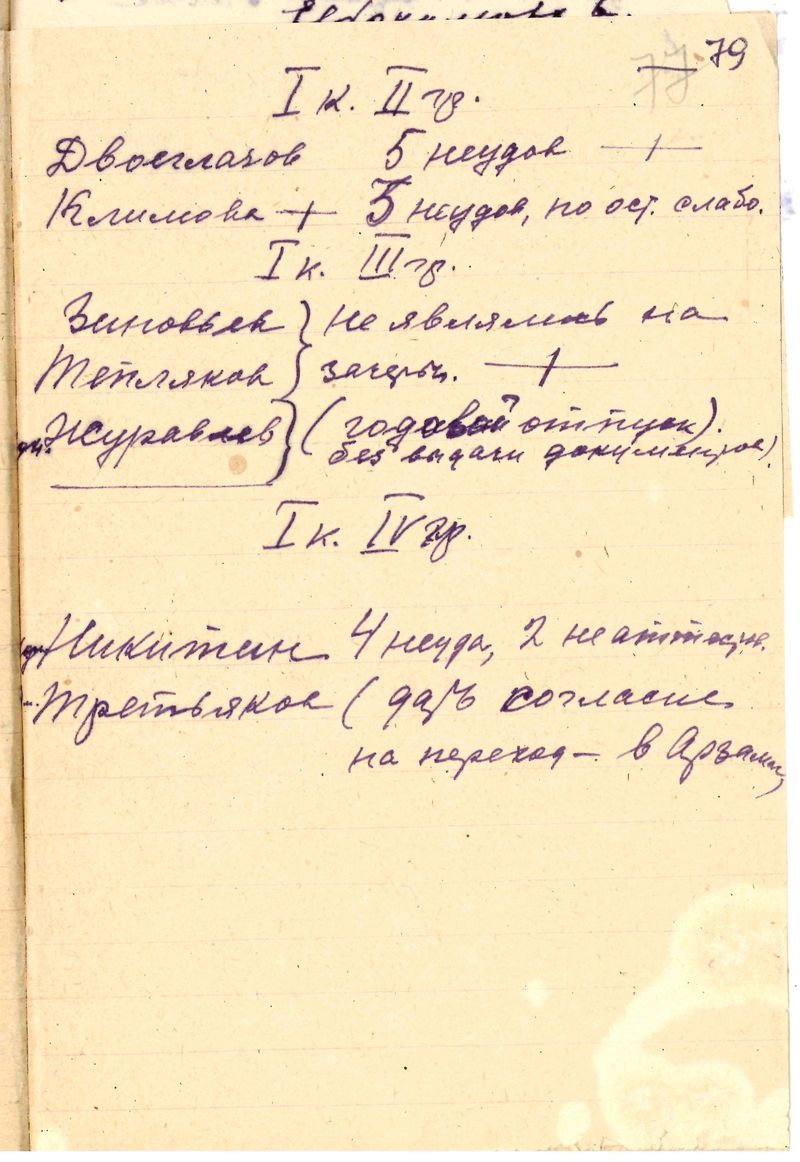 79
77
I к. II гр.
Двоеглазов 5 неудов +
Климова + 5 неудов, по ост. слабо.
I к. III гр.
Зиновьев } не являлись на
Тепляков } зачеты. +
Журавлев } (годовой отпуск).
без выдачи документов).
I к. IV гр.
Никитин 4 неуда, 2 неаттестов.
Третьяков (дать согласие
на переход – в Арзамас)